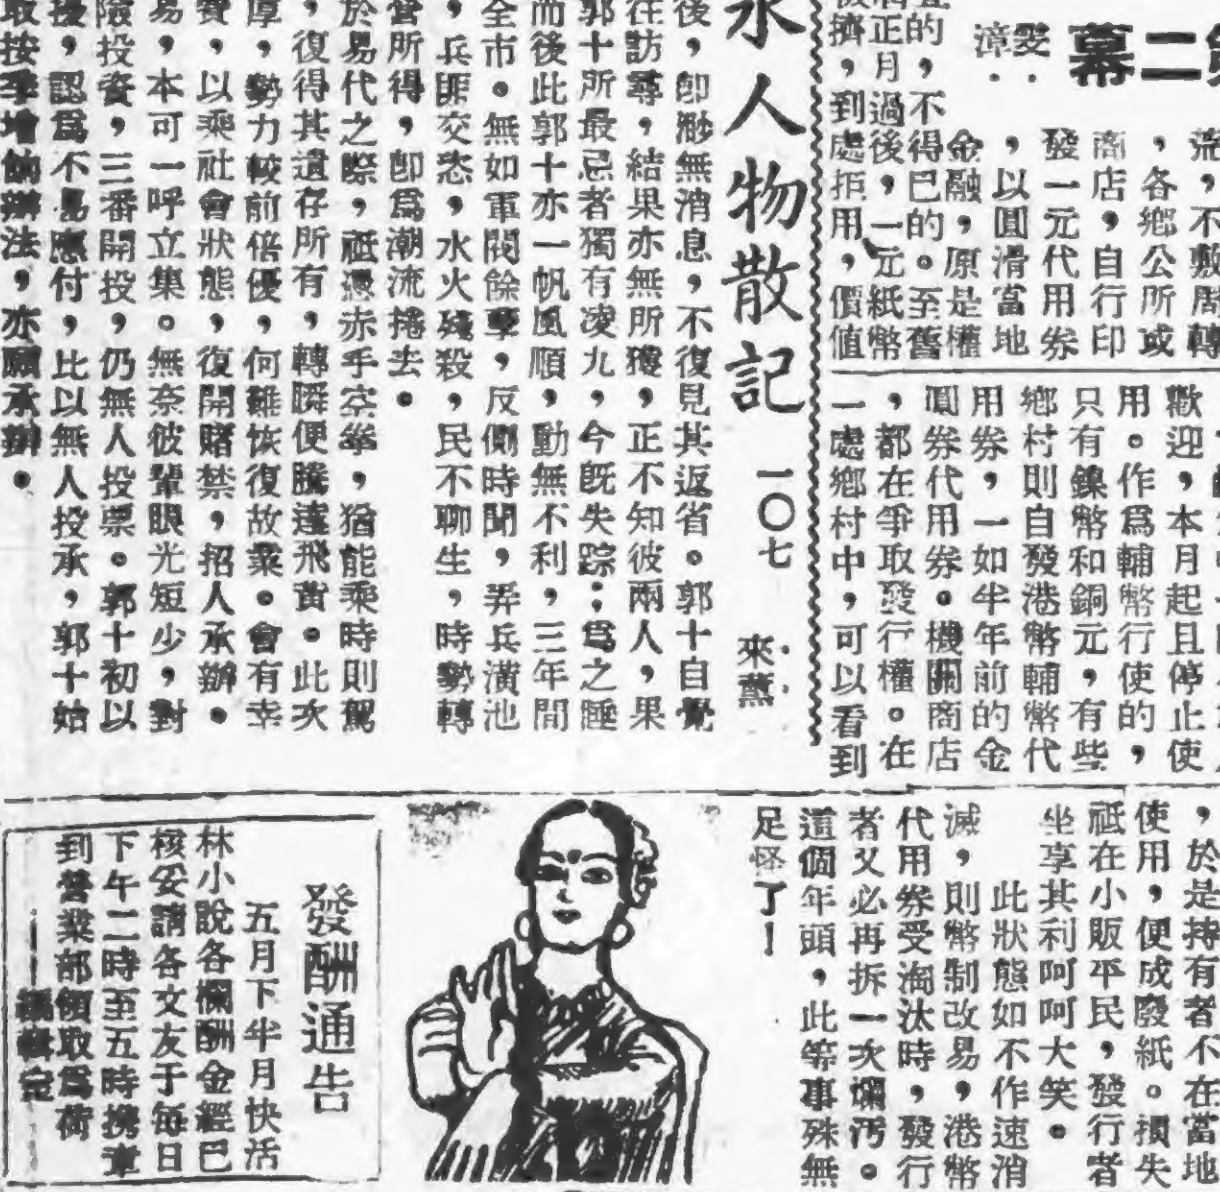 二幕
雯漳
荒，不敷周轉
，各鄉公所或
商店，自行印
發一元代用券
，以圓滑當地
金融，原是權
的，不得已的。至舊
正月過後，一元紙幣
擠，到處拒用，價值
歡迎，本月起且停止使
用。作爲輔幣行使的，
只有鎳幣和銅元，有些
鄉村則自發港幣輔幣代
用券，一如半年前的金
圓券代用券。機關商店
，都在爭取發行權。在
一處鄉村中，可以看到
，於是持有者不在當地
使用，便成廢紙。損失
祗在小販平民，發行者
坐享其利呵呵大笑。
此狀態如不作速消
滅，則幣制改易，港幣
代用券受淘汰時，發行
者又必再拆一次爛污。
這個年頭，此等事殊無
足怪了！
水人物散記 一〇七 來薰
後，卽渺無消息，不復見其返省。郭十自覺
往訪尋，結果亦無所獲，正不知彼兩人，果
郭十所最忌者獨有凌九，今旣失踪；爲之睡
而後此郭十亦一帆風順，動無不利，三年間
全市。無如軍閥餘孽，反側時聞，弄兵潢池
，兵匪交恣，水火殘殺，民不聊生，時勢轉
營所得，卽爲潮流捲去。
於易代之際，祗憑赤手空拳，猶能乘時則駕
，復得其遺存所有，轉瞬便騰達飛黃。此次
厚，勢力較前倍優，何難恢復故業。會有幸
費，以乘社會狀態，復開賭禁，招人承辦。
易，本可一呼立集。無奈彼輩眼光短少，對
險投資，三番開投，仍無人投票。郭十初以
，認爲不易應付，比以無人投承，郭十始
取按季增餉辦法，亦願承辦。
發酬通告
五月下半月快活
林小說各欄酬金經已
核妥請各文友于每日
下午二時至五時携章
到營業部領取爲荷
——編輯室